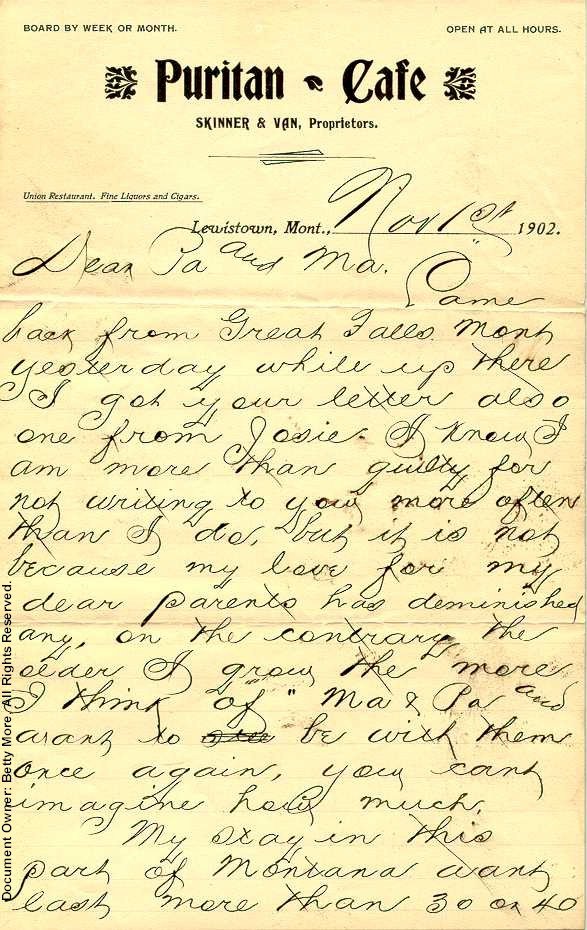 BOARD BY WEEK OR MONTH. OPEN AT ALL HOURS.
Puritan Cafe
SKINNER & VAN, Proprietors.
Union Restaurant. Fine Liquors and Cigars.
Lewistown, Mont., Nov 1st 1902.
Dear Pa and Ma.
Came
back from Great Falls Mont
yesterday while up there
I got your letter also
one from Josie. I know I
am more than guilty for
not writing to you more often
than I do, but it is not
because my love for my
dear parents has deminished
any, on the contrary the
older I grow the more
I think of "Ma & Pa and
want to be with them
once again, you cant
imagine how much.
My stay in this
part of Montana wont
last more than 30 or 40
Document Owner: Betty More. All Rights Reserved.